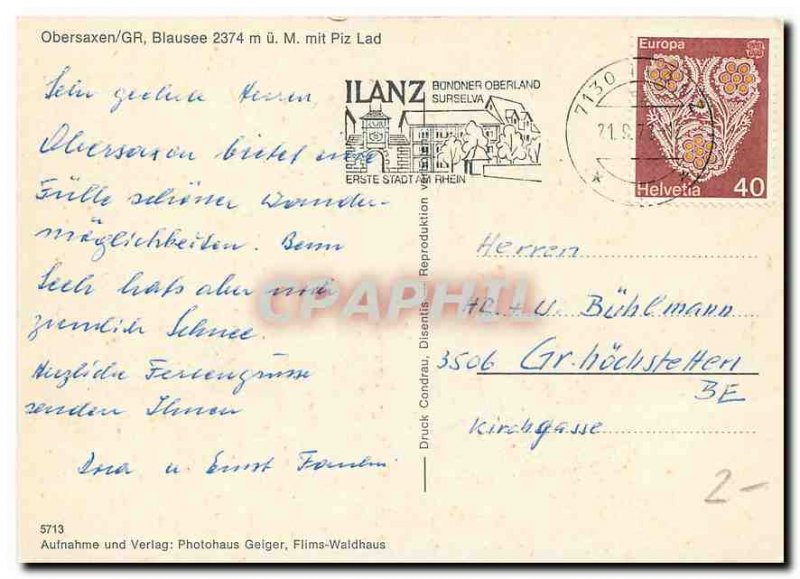 Obersaxen/GR, Blausee 2374 m ü. M. mit Piz Lad
ILANZ BÜNDNER OBERLAND
SURSELVA
ERSTE STADT AM RHEIN
7130
21.9.7
Europa
Helvetia 40
Sehr geehrte Herren,
Obersaxen bietet eine
Fülle schöner Wander-
möglichkeiten. Beim
Seeli hats aber noch
ziemlich Schnee.
Herzliche Feriengrüsse
senden Ihnen
Dora u Ernst
Herren
+ U. Bühlmann
3506 Gr. höchstetten
BE
Kirchgasse
2-
Druck Condrau, Disentis — Reproduktion verboten
CPAPHIL
5713
Aufnahme und Verlag: Photohaus Geiger, Flims-Waldhaus